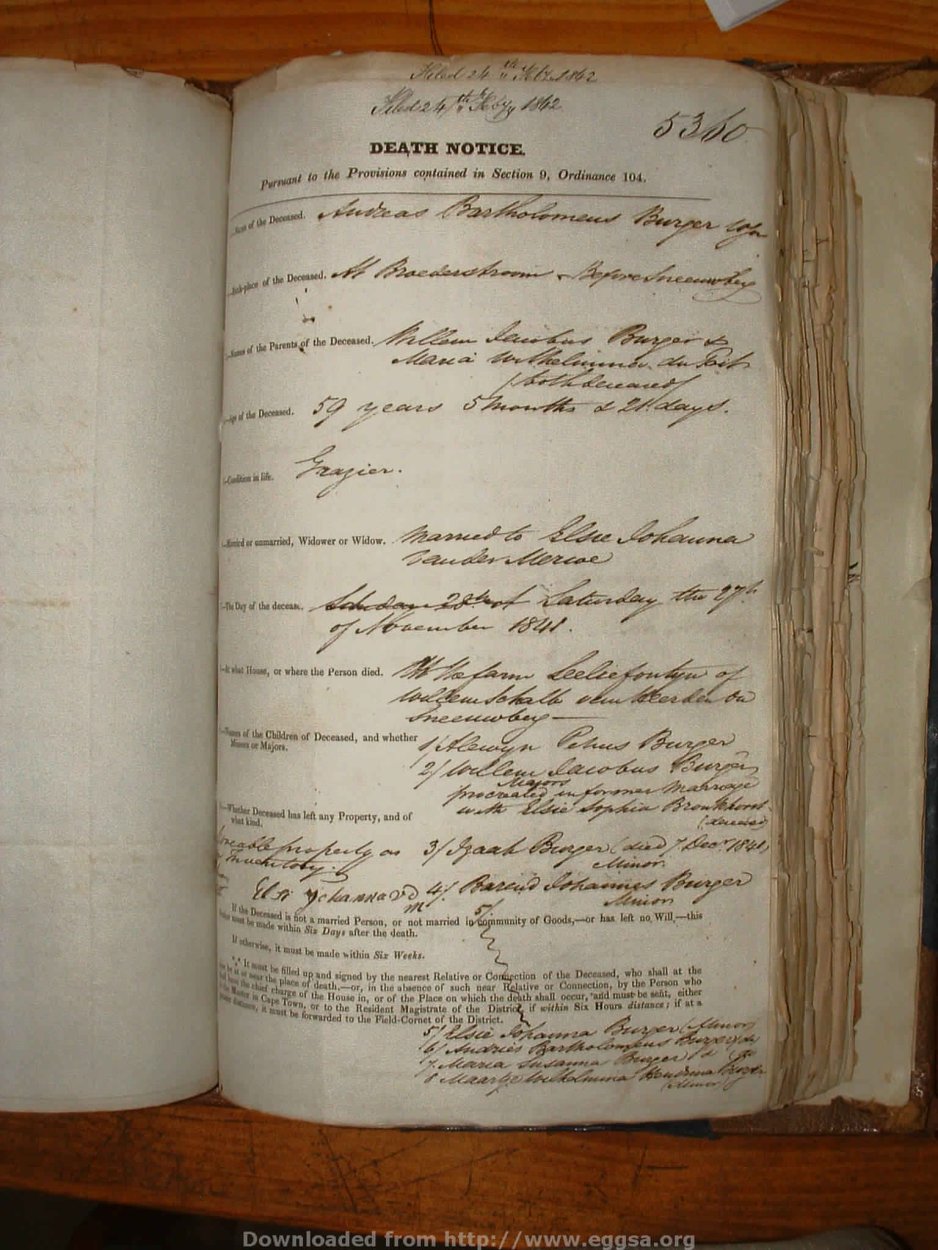 Filed 24th Feby 1842
Filed 24th Feby 1842
5360
DEATH NOTICE.
Pursuant to the Provisions contained in Section 9, Ordinance 104.
Name of the Deceased. Andreas Bartholomeus Burger
Birth-place of the Deceased. At Broederstroom Before Sneeuwberg
Names of the Parents of the Deceased. Willem Jacobus Burger &
Maria Wilhelmina du Toit
(both deceased)
Age of the Deceased. 59 years 5 months & 21 days.
Condition in life. Grazier.
Married or unmarried, Widower or Widow. Married to Elsie Johanna
van der Merwe
The Day of the decease. Saturday the 27th
of November 1841.
At what House, or where the Person died. At the farm Leliefontyn of
Willem Schalk van Heerden on
Sneeuwberg
Names of the Children of Deceased, and whether
Minors or Majors.
1/ Alewyn Petrus Burger
2/ Willem Jacobus Burger
Majors
procreated in former marriage
with Elsie Sophia Bronkhorst
(deceased)
Whether Deceased has left any Property, and of
what kind.
Moveable property as
Inventory.
3/ Izaak Burger (died 7 Decr 1841)
Minor
Elsi Johanna V D
M
4/ Barend Johannes Burger
Minor
5/
If the Deceased is not a married Person, or not married in community of Goods,—or has left no Will,—this
must be made within Six Days after the death.
If otherwise, it must be made within Six Weeks.
*** It must be filled up and signed by the nearest Relative or Connection of the Deceased, who shall at the
be at or near the place of death,—or, in the absence of such near Relative or Connection, by the Person who
the chief charge of the House in, or of the Place on which the death shall occur, and must be sent, either
Master in Cape Town, or to the Resident Magistrate of the District, if within Six Hours distance; if at a
distance, it must be forwarded to the Field-Cornet of the District.
5/ Elsie Johanna Burger (Minor)
6/ Andries Bartholomeus Burger do
7/ Maria Susanna Burger do
8 Maartje Wilhelmina Hendrina Burger
(Minor)
Downloaded from http://www.eggsa.org